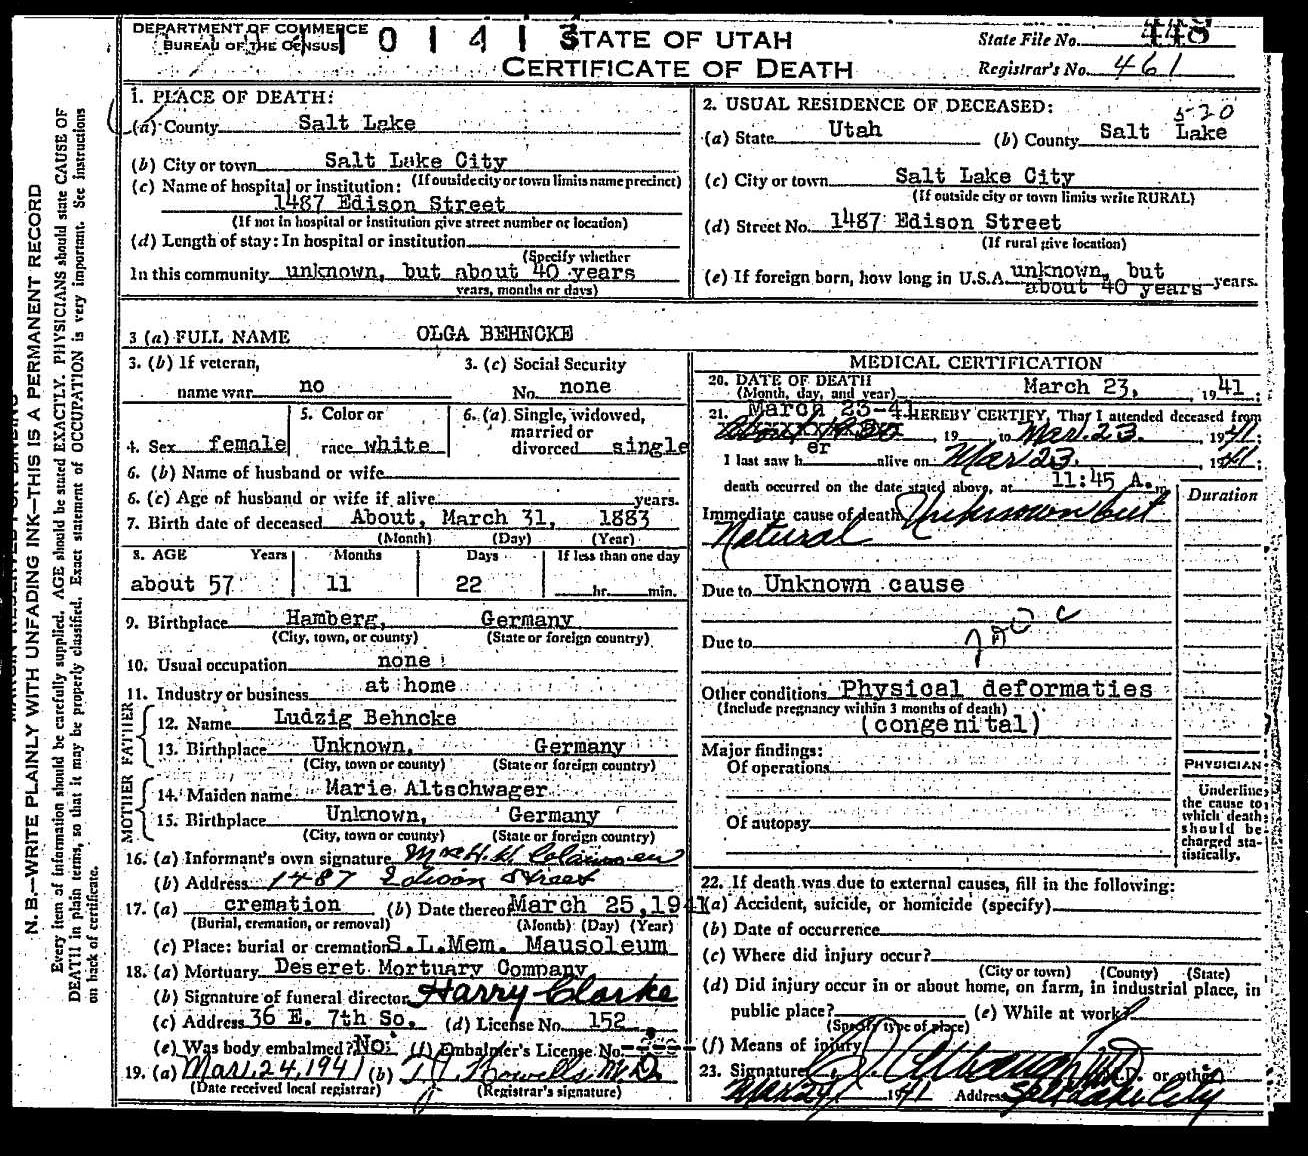 DEPARTMENT OF COMMERCE
BUREAU OF THE CENSUS
STATE OF UTAH
CERTIFICATE OF DEATH
State File No. 448
Registrar's No. 461
1. PLACE OF DEATH:
(a) County Salt Lake
(b) City or town Salt Lake City
(If outside city or town limits name precinct)
(c) Name of hospital or institution:
1487 Edison Street
(If not in hospital or institution give street number or location)
(d) Length of stay: In hospital or institution
(Specify whether
In this community unknown, but about 40 years
years, months or days)
2. USUAL RESIDENCE OF DECEASED:
5-20
(a) State Utah (b) County Salt Lake
(c) City or town Salt Lake City
(If outside city or town limits write RURAL)
(d) Street No. 1487 Edison Street
(If rural give location)
(e) If foreign born, how long in U.S.A. unknown, but
about 40 years years.
3 (a) FULL NAME OLGA BEHNCKE
3. (b) If veteran,
name war no
3. (c) Social Security
No. none
4. Sex female
5. Color or
race white
6. (a) Single, widowed,
married or
divorced single
6. (b) Name of husband or wife
6. (c) Age of husband or wife if alive years.
7. Birth date of deceased About, March 31, 1883
(Month) (Day) (Year)
8. AGE Years Months Days If less than one day
about 57 11 22 hr. min.
9. Birthplace Hamberg, Germany
(City, town, or county) (State or foreign country)
10. Usual occupation none
11. Industry or business at home
FATHER
12. Name Ludzig Behncke
13. Birthplace Unknown, Germany
(City, town or county) (State or foreign country)
MOTHER
14. Maiden name Marie Altschwager
15. Birthplace Unknown, Germany
(City, town or county) (State or foreign country)
16. (a) Informant's own signature Mrs H. H. Claussen
(b) Address 1487 Edison Street
17. (a) cremation (b) Date thereof March 25, 1941
(Burial, cremation, or removal) (Month) (Day) (Year)
(c) Place: burial or cremation S.L.Mem. Mausoleum
18. (a) Mortuary Deseret Mortuary Company
(b) Signature of funeral director Harry Clarke
(c) Address 36 E. 7th So. (d) License No. 152
(e) Was body embalmed? No. (f) Embalmer's License No.
19. (a) Mar. 24, 1941 (b) Howells M.D.
(Date received local registrar) (Registrar's signature)
MEDICAL CERTIFICATION
20. DATE OF DEATH
(Month, day, and year) March 23, 1941;
21. I HEREBY CERTIFY, That I attended deceased from
March 23-41
, 19 to Mar. 23. , 1941;
I last saw her alive on Mar 23. , 1941;
death occurred on the date stated above, at 11:45 A. m.
Duration
Immediate cause of death Unknown but
Natural
Due to Unknown cause
Due to
Other conditions Physical deformaties
(Include pregnancy within 3 months of death)
(congenital)
Major findings:
Of operations
Of autopsy
PHYSICIAN
Underline
the cause to
which death
should be
charged sta-
tistically.
22. If death was due to external causes, fill in the following:
(a) Accident, suicide, or homicide (specify)
(b) Date of occurrence
(c) Where did injury occur?
(City or town) (County) (State)
(d) Did injury occur in or about home, on farm, in industrial place, in
public place? (e) While at work?
(Specify type of place)
(f) Means of injury
23. Signature (M.D. or other)
Mar 24 1941 Address Salt Lake City
N. B.—WRITE PLAINLY WITH UNFADING INK—THIS IS A PERMANENT RECORD
Every item of information should be carefully supplied. AGE should be stated EXACTLY. PHYSICIANS should state CAUSE OF
DEATH in plain terms, so that it may be properly classified. Exact statement of OCCUPATION is very important. See instructions
on back of certificate.